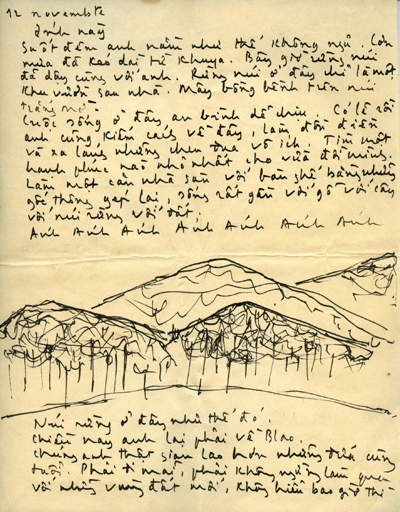 12 novembre
Ánh này
Suốt đêm anh nằm như thế không ngủ. Cơn
mưa đã kéo dài từ khuya. Bây giờ rừng núi
đã dậy cùng với anh. Rừng núi ở đây chỉ là một
khu vườn sau nhà. Mây bồng bềnh trên núi
trông
Cuộc sống ở đây an bình dễ chịu. Có lẽ rồi
anh cũng kiếm cách về đây, làm đồn điền
và xa lánh những chen đua vô ích. Tìm một
hạnh phúc nào nhỏ nhất cho vừa đôi mình.
Làm một căn nhà sàn với bàn ghế bằng những
gốc thông ghép lại, sống rất gần với gỗ với cây
với núi rừng với đất.
Ánh Ánh Ánh Ánh Ánh Ánh Ánh
Núi rừng ở đây như thế đó.
Chiều nay anh lại phải về Blao.
Chúng anh thật gian lao hơn những đứa cùng
tuổi. Phải đi mãi, phải không ngừng làm quen
với những vùng đất mới, không hiểu bao giờ thì